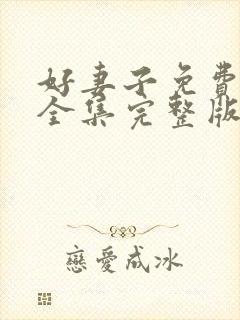 好妻子免費
全集完整版
戀愛成冰